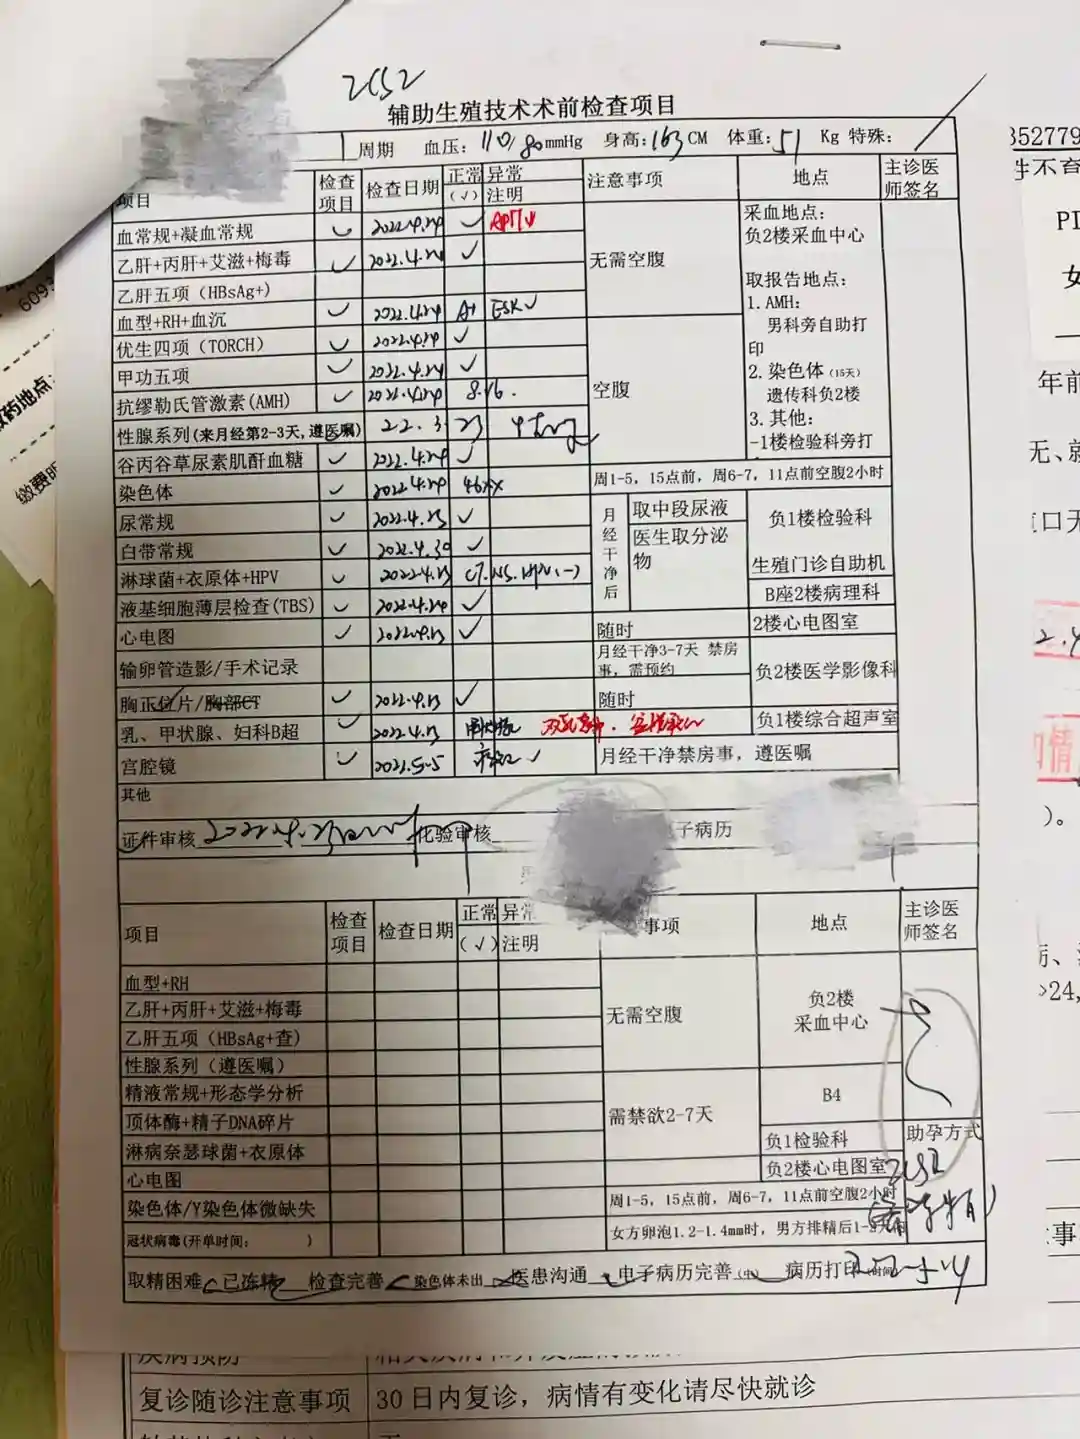 辅助生殖技术术前检查项目
周期 血压: 110/80mmHg 身高:163CM 体重:51 Kg 特殊:
项目 检查项目 检查日期 正常(√) 异常注明 注意事项 地点 主诊医师签名
血常规+凝血常规 2022.4.24
乙肝+丙肝+艾滋+梅毒 2022.4.24
无需空腹
采血地点:
负2楼采血中心
乙肝五项(HBsAg+)
血型+RH+血沉 2022.4.24 A+
优生四项(TORCH) 2022.4.24
甲功五项 2022.4.24
抗缪勒氏管激素(AMH) 2022.4.24 8.16.
性腺系列(来月经第2-3天,遵医嘱)
谷丙谷草尿素肌酐血糖 2022.4.24
空腹
取报告地点:
1. AMH:
男科旁自助打印
2. 染色体(15天)
遗传科负2楼
3. 其他:
-1楼检验科旁打
染色体 2022.4.24 46XX
周1-5, 15点前, 周6-7, 11点前空腹2小时
尿常规 2022.4.23
月经干净后 取中段尿液 负1楼检验科
白带常规 2022.4.30
医生取分泌物
淋球菌+衣原体+HPV 2022.4.23 CT.NG.HPV(-)
生殖门诊自助机
液基细胞薄层检查(TBS) 2022.4.24
B座2楼病理科
心电图 2022.4.23 随时 2楼心电图室
输卵管造影/手术记录 月经干净3-7天 禁房事, 需预约 负2楼医学影像科
胸正位片/胸部CT 2022.4.23 随时
乳、甲状腺、妇科B超 2022.4.23 负1楼综合超声室
宫腔镜 2022.5.5 月经干净禁房事, 遵医嘱
其他
证件审核 化验审核 子病历
项目 检查项目 检查日期 正常(√) 异常注明 事项 地点 主诊医师签名
血型+RH
乙肝+丙肝+艾滋+梅毒
乙肝五项(HBsAg+查)
性腺系列(遵医嘱)
无需空腹
负2楼
采血中心
精液常规+形态学分析
顶体酶+精子DNA碎片
淋病奈瑟球菌+衣原体
需禁欲2-7天
B4
负1检验科
助孕方式
心电图 负2楼心电图室
染色体/Y染色体微缺失 周1-5, 15点前, 周6-7, 11点前空腹2小时
冠状病毒(开单时间: )
女方卵泡1.2-1.4mm时, 男方排精后1-
取精困难 已冻精 检查完善 染色体未出 医患沟通 电子病历完善 病历打印(时间)
疾病预防
复诊随诊注意事项 30日内复诊, 病情有变化请尽快就诊
352779
件不育
PI
女
年前
无、就
道口无
)。
>24,
事
6093
取药地点:
缴费